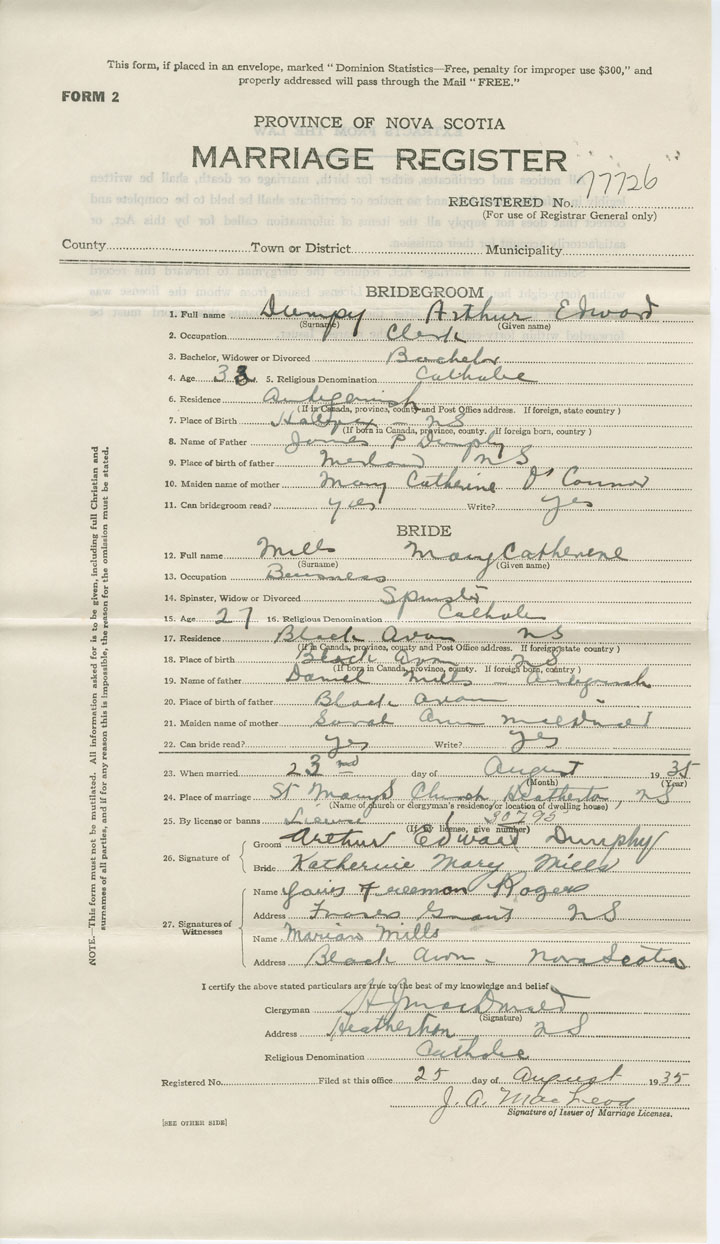 This form, if placed in an envelope, marked "Dominion Statistics—Free, penalty for improper use $300," and
properly addressed will pass through the Mail "FREE."
FORM 2
PROVINCE OF NOVA SCOTIA
MARRIAGE REGISTER
REGISTERED No. 77726
(For use of Registrar General only)
County Town or District Municipality
BRIDEGROOM
1. Full name Dumpy Arthur Edward
(Surname) (Given name)
2. Occupation Clerk
3. Bachelor, Widower or Divorced Bachelor
4. Age 33 5. Religious Denomination Catholic
6. Residence Antigonish
(If in Canada, province, county and Post Office address. If foreign, state country)
7. Place of Birth Halifax — NS
(If born in Canada, province, county. If foreign born, country)
8. Name of Father James P Dumphy
9. Place of birth of father Merland NS
10. Maiden name of mother Mary Catherine O'Connor
11. Can bridegroom read? yes Write? yes
BRIDE
12. Full name Mills Mary Catherene
(Surname) (Given name)
13. Occupation Buisness
14. Spinster, Widow or Divorced Spinster
15. Age 27 16. Religious Denomination Catholic
17. Residence Black Avon NS
(If in Canada, province, county and Post Office address. If foreign state country)
18. Place of birth Black Avon NS
(If born in Canada, province, county. If foreign born, country)
19. Name of father Daniel Mills — Antigonish
20. Place of birth of father Black Avon
21. Maiden name of mother Sarah Ann
22. Can bride read? yes Write? yes
23. When married 23nd day of August 1935
(Month) (Year)
24. Place of marriage St Marys Church, Heatherton, NS
(Name of church or clergyman's residence, or location of dwelling house)
25. By license or banns License 30795
(If by license, give number)
26. Signature of
Groom Arthur Edward Dumphy
Bride Katherine Mary Mills
27. Signatures of Witnesses
Name Freeman Rogers
Address Frasers Grant NS
Name Marian Mills
Address Black Avon - Nova Scotia
I certify the above stated particulars are true to the best of my knowledge and belief
Clergyman H J MacDonald
(Signature)
Address Heatherton NS
Religious Denomination Catholic
Registered No. Filed at this office 25 day of August 1935
J. A. MacLeod
Signature of Issuer of Marriage Licenses.
[SEE OTHER SIDE]
NOTE.—This form must not be mutilated. All information asked for is to be given, including full Christian and
surnames of all parties, and if for any reason this is impossible, the reason for the omission must be stated.